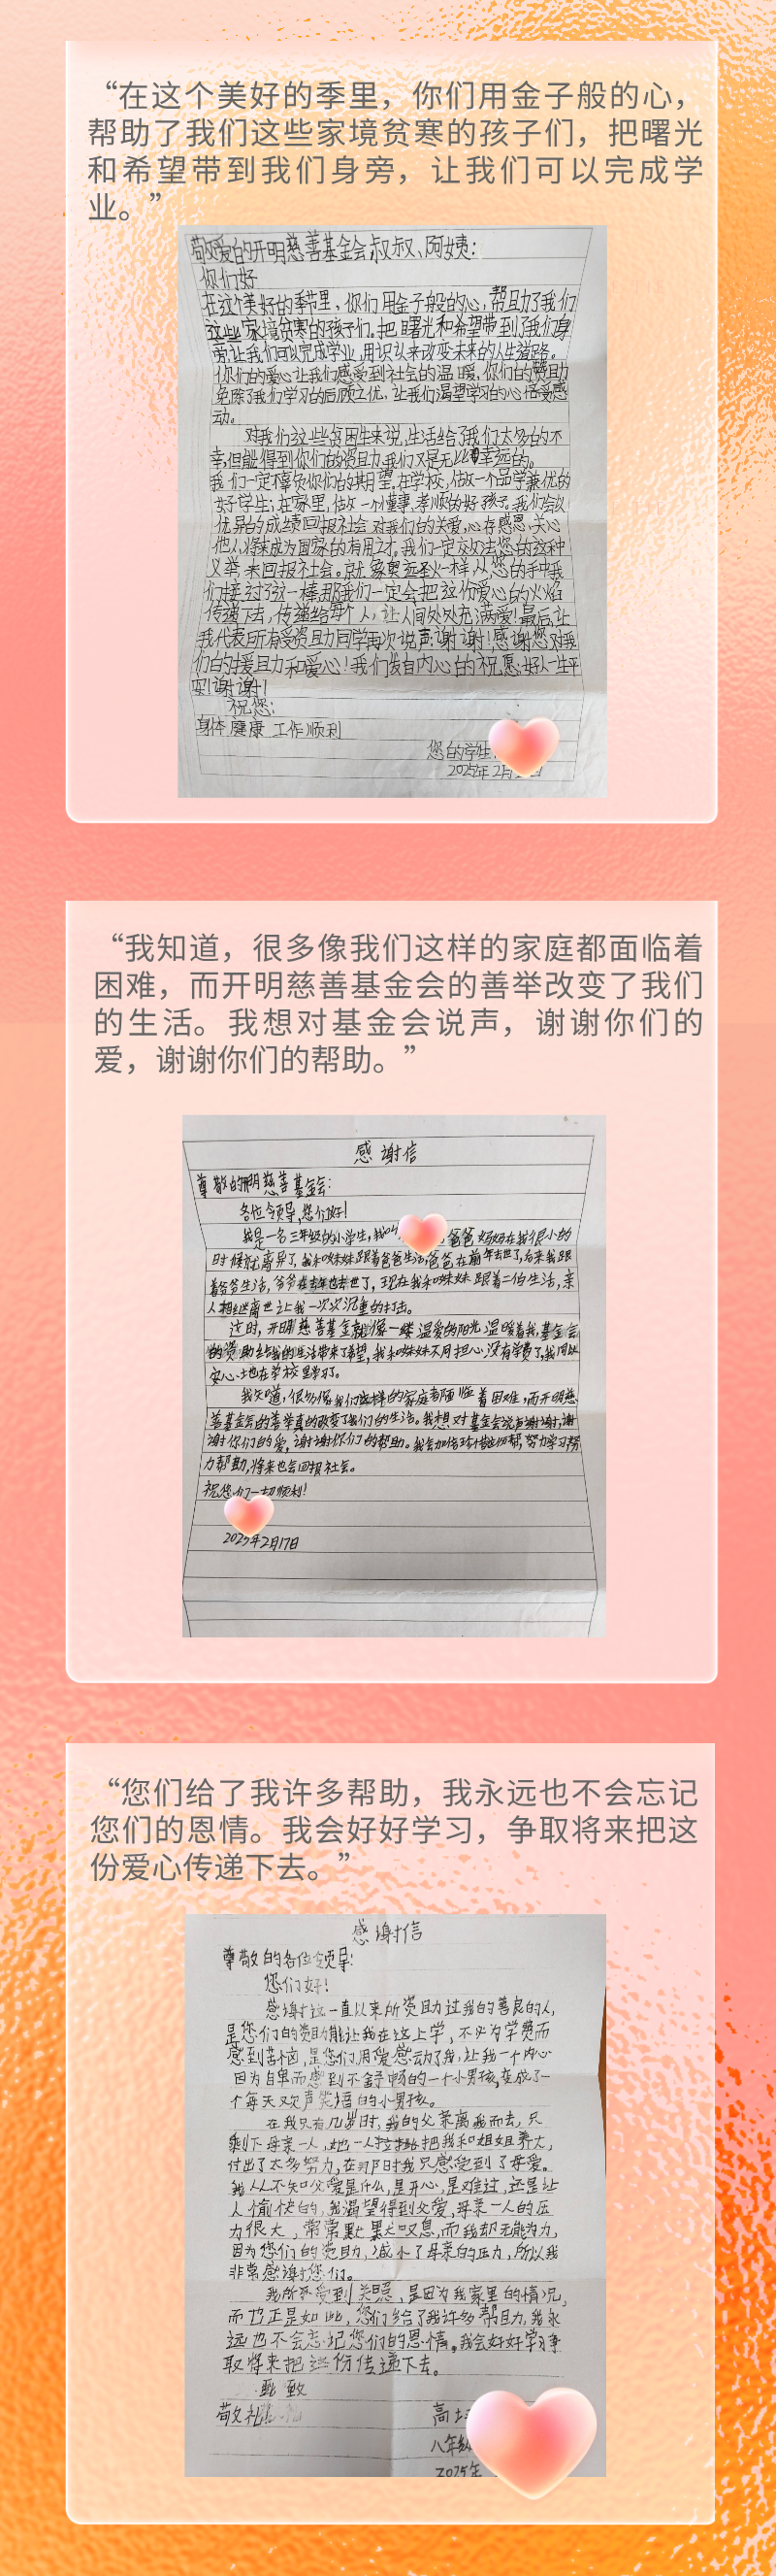 “在这个美好的季里，你们用金子般的心，
帮助了我们这些家境贫寒的孩子们，把曙光
和希望带到我们身旁，让我们可以完成学
业。”
敬爱的开明慈善基金会叔叔、阿姨：
你们好
在这个美好的季节里，你们用金子般的心，帮助了我们
这些家境贫寒的孩子们。把曙光和希望带到了我们身
旁，让我们可以完成学业，用识来改变未来的人生道路。
你们的爱心让我们感受到社会的温暖，你们的赞助
免除了我们学习的后顾之优，让我们渴望学习的心倍受感
动。
对我们这些贫困生来说，生活给了我们太多的不
幸，但能得到你们的资助，我们又是无比幸运的。
我们一定不辜负你们的期望，在学校，做一个品学兼优的
好学生；在家里，做一个懂事、孝顺的好孩子。我们会以
优异的成绩回报社会对我们的关爱，心存感恩，关心
他人，将来成为国家的有用之才。我们一定效法您的这种
义举，来回报社会。就像奥运圣火一样，从您的手中我
们接过了这一棒，那我们一定会把这份爱心的火焰
传递下去，传递给每个人，让人间处处充满爱！最后，让
我代表所有受资助同学再次说声：谢谢！感谢您对我
们的援助和爱心！我们发自内心的祝愿：好人一生平
安！谢谢！
祝您：
身体健康 工作顺利
您的学生：
2025年2月
“我知道，很多像我们这样的家庭都面临着
困难，而开明慈善基金会的善举改变了我们
的生活。我想对基金会说声，谢谢你们的
爱，谢谢你们的帮助。”
感谢信
尊敬的开明慈善基金会：
各位领导，您们好！
我是一名三年级的小学生，我叫 爸爸妈妈在我很小的
时候就离异了，我和妹妹跟着爸爸生活，爸爸在前年去世了，后来我跟
着爷爷生活，爷爷在去年也去世了，现在我和妹妹跟着二伯生活，亲
人相继离世让我一次次沉重的打击。
这时，开明慈善基金就像一缕温爱的阳光温暖着我，基金会
的资助给我的生活带来了希望，我和妹妹不用担心没有学费了，我可以
安心地在学校里学习了。
我知道，很多像我们这样的家庭都面临着困难，而开明慈
善基金会的善举真的改变了我们的生活。我想对基金会说声谢谢，谢
谢你们的爱，谢谢你们的帮助。我会加倍珍惜这份帮，努力学习帮
力帮助，将来也会回报社会。
祝您们一切顺利！
2025年2月17日
“您们给了我许多帮助，我永远也不会忘记
您们的恩情。我会好好学习，争取将来把这
份爱心传递下去。”
感谢信
尊敬的各位领导：
您们好！
感谢这一直以来所资助过我的善良的人，
是您们的资助能让我在这上学，不必为学费而
感到苦恼，是您们用爱感动了我，让我一个内心
因为自卑而感到不舒畅的一个小男孩，变成了一
个每天欢声笑语的小男孩。
在我只有几岁时，我的父亲离我而去，只
剩下母亲一人，她一人把我和姐姐养大，
付出了太多努力，在那时我只感觉到了母爱。
我从不知父爱是什么，是开心，是难过，还是让
人愉快的，我渴望得到父爱，母亲一人的压
力很大，常常默默叹息，而我却无能为力，
因为您们的资助，减小了母亲的压力，所以我
非常感谢您们。
我所受到关照，是因为我家里的情况，
而也正是如此，您们给了我许多帮助，我永
远也不会忘记您们的恩情。我会好好学习争
取将来把这份传递下去。
此致
敬礼
高
八年级
2025年